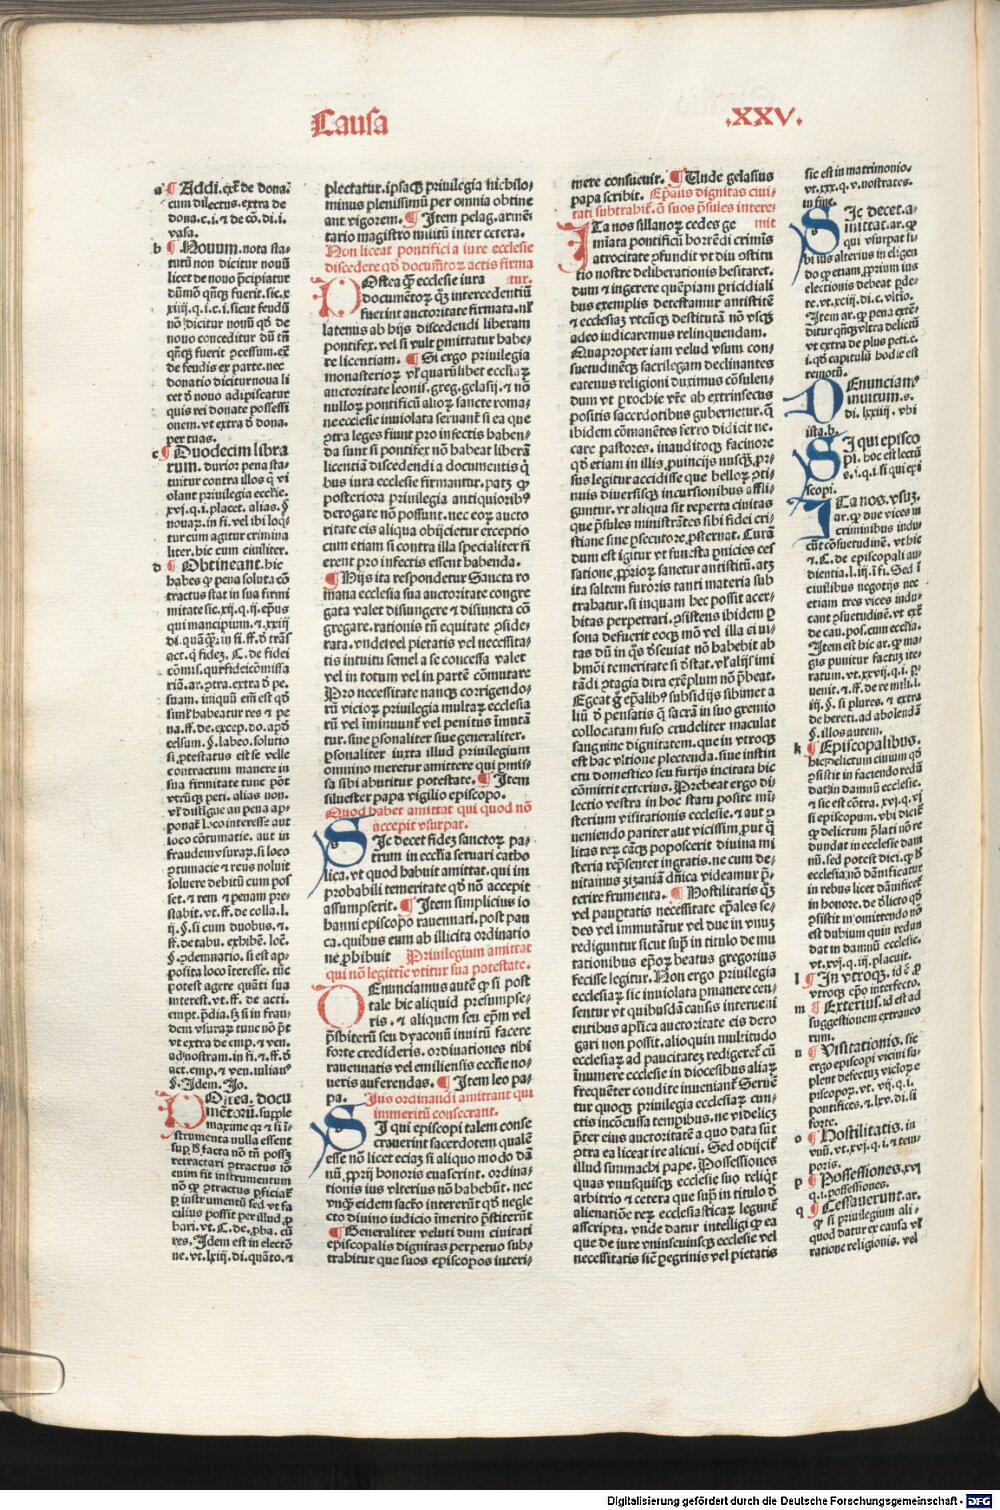 Causa .XXV.
a ¶ Addi. ext̄ de dona.
cum dilectus. extra de
dona. c. i. ⁊ de cō. di. i.
vasa.
b ¶ Nouum. nota sta-
tutū non dicitur nouū
licet de nouo p̄cipiatur
dūmō qn̄q₃ fuerit. sic. x
xiiij. q. i. c. i. sicut feudū
nō dicitur nouū qd̄ de
nouo conceditur dū tn̄
qn̄q₃ fuerit ꝯcessum. ex̄
de feudis ex parte. nec
donatio dicitur noua li
cet d̄ nouo adipiscatur
quis rei donate possessi
onem. vt extra d̄ dona.
per tuas.
c ¶ Duodecim libra
rum. durior pena sta-
tuitur contra illos q̄ vi
olant priuilegia ecclīe.
xvj. q. i. placet. alias. §
nouaꝝ. in fi. vel ibi loq̄-
tur cum agitur crimina
liter. hic cum ciuiliter.
d ¶ Obtineant. hic
habes ꝙ pena soluta cō
tractus stat in sua firmi
mitate sic. xij. q. ij. ep̄us
qui mancipium. ⁊ xxiij
di. quāq̄₃. in fi. ff. d̄ trās
act. q̄ fidez. C. de fidei
cōmis.
riā. ar. ꝯtra. extra d̄ pe.
suam. iniquū em̄ est qd̄
simł habeatur res ⁊ pe
na. ff. de. excep. do. apd̄
celsum. §. labeo. solutio
si ꝓtestatus est se velle
contractum manere in
sua firmitate tunc pōt
vtrūq₃ peti. alias non.
vł distigue an pena ap-
ponat̄ loco interesse aut
loco cōtumatie. aut in
fraudem vsuraꝝ. si loco
ꝯtumacie ⁊ reus noluit
soluere debitū cum pos
set. ⁊ rem ⁊ penam pre-
stabit. vt. ff. de colla. l.
ij. §. si cum duobus. ⁊.
ff. de tabu. exhibē. locē.
§. ꝯdemnatio. si est ap-
posita loco īteresse. tūc
potest agere quāti sua
interest. vt. ff. de acti.
empt. p̄dia. s₃ si in frau-
dem vsuraꝝ tunc nō p̄t
vt extra de emp. ⁊ ven.
ad nostram. in fi. ⁊. ff. d̄
act. emp. ⁊ ven. iulian⁹
§. Idem. Jo.
POstea. docu
mētoꝝ. supple
maxime qꝛ ⁊ si ī-
strumenta nulla essent
suꝑ h̄ facta nō tn̄ poss₃
retractari ꝯtractus iō
enim fit instrumentum
nō ꝙ ꝯtractus ꝑficiat̄
ꝑ instrumentū sed vt fa
cilius possit per illud ꝓ
bari. vt. C. de. ꝓba. cū
res. Idem est in electō
ne. vt. lxiij. di. quāto. ⁊
plectatur. ipsaq₃ priuilegia nichilo-
minus plenissimū per omnia obtine
ant vigorem. ¶ Item pelag. armē-
tario magistro militū inter cetera.
Non liceat pontifici a iure ecclesie
discedere qd̄ documētoꝝ actis firma
tur.
POstea ꝙ̄ ecclesie iura
documētoꝝ q̄₃ intercedentiū
fuerint auctoritate firmata. nł
latenus ab hijs discedendi liberam
pontifex. vel si vult ꝑmittatur habe-
re licentiam. ¶ Si ergo priuilegia
monasterioꝝ vł quarūlibet eccl̄iaꝝ
auctoritate leonis. greg. gelasij. ⁊ nō
nulloꝝ pontificū alioꝝ sancte roma-
ne ecclesie inuiolata seruant̄ si ea que
ꝯtra leges fiunt pro infectis haben-
da sunt si pontifex nō habeat liberā
licentiā discedendi a documentis q̄
bus iura ecclesie firmantur. patz ꝙ
posteriora priuilegia antiquiorib⁹
derogare nō possunt. nec eoꝝ aucto
ritate eis aliqua obijcietur exceptio
cum etiam si contra illa specialiter fi
erent pro infectis essent habenda.
¶ Hijs ita respondetur Sancta ro
mana ecclesia sua auctoritate congre
gata valet disiungere ⁊ disiuncta cō
gregare. rationis tn̄ equitate ꝯside
rata. vnde vel pietatis vel necessita-
tis intuitu semel a se concessa valet
vel in totum vel in partē cōmutare
Pro necessitate nanq₃ corrigendo-
rū vicioꝝ priuilegia multaꝝ ecclesia
rū vel iminuunt̄ vel penitus īmutā
tur. siue ꝑsonaliter siue generaliter.
ꝑsonaliter iuxta illud priuilegium
omnino meretur amittere qui ꝑmis-
sa sibi abutitur potestate. ¶ Item
siluester papa vigilio episcopo.
Quod habet amittat qui quod nō
accepit vsurpat.
SIc decet fidez sanctoꝝ pa-
trum in eccl̄ia seruari catho
lica. vt quod habuit amittat. qui im
probabili temeritate qd̄ nō accepit
assumpserit. ¶ Item simplicius io
hanni episcopo rauennati. post pau
ca. quibus eum ab illicita ordinatio
ne ꝓhibuit Priuilegium amittat
qui nō legittīe vtitur sua potestate.
DEnunciamus autē ꝙ si post
tale hic aliquid presumpse-
ris. ⁊ aliquem seu ep̄m vel
p̄sbiterū seu dyaconū inuitū facere
forte credideris. ordinationes tibi
rauennatis vel emiliensis eccl̄ie no-
ueris auferendas. ¶ Item leo pa-
pa. Jus ordinandi amittant qui
immeritū consecrant.
SI qui episcopi talem conse
crauerint sacerdotem qualē
esse nō licet eciaz si aliquo modo dā
nū ꝓprij honoris euaserint. ordina-
tionis ius vlterius nō habebūt. nec
vnꝙ̄ eidem sacr̄to intererūt qd̄ negle
cto diuino iudicio īmerito p̄stiterūt
¶ Generaliter veluti dum ciuitati
episcopalis dignitas perpetuo sub-
trahitur que suos episcopos interi-
mere consueuit. ¶ Unde gelasius
papa scribit. Ep̄alis dignitas ciui-
tati subtrahit̄. q̄ suos p̄sules interi-
mit
ITa nos sillanoꝝ cedes ge
miata pontificū horrēdi crimis
atrocitate ꝯfundit vt diu ꝯstitu
tio nostre deliberationis hesitaret.
dum ⁊ ingerere quēpiam pricidiali
bus exemplis detestamur antistitē
⁊ ecclesiaz vtcūq₃ destitutā nō vsq₃
adeo iudicaremus relinquendam.
Quapropter iam velud vsum con-
suetudinēq₃ sacrilegam declinantes
eatenus religioni duximus cōsulen-
dum vt ꝑrochie vr̄e ab extrinsecus
positis sacerdotibus gubernetur. q̄
ibidem cōmanētes ferro didicit ne-
care pastores. inauditoq₃ facinore
qd̄ etiam in illis ꝓuincijs nusq₃ pr̄-
sus legitur accidisse que belloꝝ ꝯti-
nuis diuersisq₃ incursionibus affli-
guntur. vt aliqua sit reperta ciuitas
que p̄sules ministrātes sibi fidei cri-
stiane sine ꝑsecutore ꝓsternat. Curā
dum est igitur vt functa ꝑnicies ces
satione ꝓprioꝝ sanetur antistitū. atz
ita saltem furoris tanti materia sub
trahatur. si inquam hec possit acer-
bitas perpetrari. ꝯsistens ibidem ꝑ
sona defuerit eoq₃ mō vel illa ciui-
tas dū in q̄s d̄seuiat nō habebit ab
hmōi temeritate si d̄stat. vł alijs imi
tādi ꝯtagia dira exēplum nō p̄beat.
Egeat g̊ ep̄alib⁹ subsidijs sibimet a
liū d̄ pensatis q̄ sacrā in suo gremio
collocatam fuso crudeliter maculat
sanguine dignitatem. que in vtroq₃
est hac vltione plectenda. siue instin
ctu domestico seu furijs incitata hic
cōmittit exterius. Prebeat ergo di-
lectio vestra in hoc statu posite mi-
sterium visitationis ecclesie. ⁊ aut ꝯ
ueniendo pariter aut vicissim ꝓut q̄
litas reꝝ cāq₃ poposcerit diuina mi
steria rep̄sentet ingratis. ne cum de-
uitamus zizaniā dn̄ica videamur p̄-
terire frumenta. ¶ Hostilitatis q̄₃
vel pauꝑtatis necessitate ep̄ales se-
des vel immutātur vel due in vnuz
rediguntur sicut supᵃ in titulo de mu
tationibus ep̄oꝝ beatus gregorius
fecisse legitur. Non ergo priuilegia
ecclesiaꝝ sic inuiolata ꝑmanere cen-
sentur vt quibusdā causis interueni
entibus apl̄ica auctoritate eis dero
gari non possit. alioquin multitudo
ecclesiaꝝ ad paucitatez redigeret̄ cū
īnumere ecclesie in diocesibus aliaꝝ
frequēter condite inueniant̄ Seruē
tur quoq₃ priuilegia ecclesiaꝝ cun-
ctis inconcussa tempibus. ne videlicz
p̄ter eius auctoritatē a quo data sūt
ꝯtra ea liceat ire alicui. Sed obijcit̄
illud simmachi pape. Possessiones
quas vnusquisq₃ ecclesie suo reliq̄t
arbitrio ⁊ cetera que supᵃ in titulo d̄
alienatiōe reꝝ ecclesiasticaꝝ legunt̄
asscripta. vnde datur intelligi ꝙ ea
que de iure vniuscuiusq₃ ecclesie vel
necessitatis siue ꝑegrinis vel pietatis
sic est in matrimonio.
vt. xxx. q. v. nostrates.
in fine.
SIc decet. a-
mittat. ar. ꝙ
qui vsurpat si-
bi ius alterius in eligen
do ꝙ etiam ꝓprium ius
electionis debeat pde-
re. vt. xciij. di. c. vltīo.
Item ar. ꝙ pena extē-
ditur qn̄q₃ vltra delictū
vt extra de plus peti. c.
i. qd̄ capitulū hodie est
remotū.
DEnunciam⁹
inuitum. s.
di. lxxiij. vbi
ista. b.
SI qui episco
pi. hoc est lectū
s. i. q. i. si qui epi
scopi.
ITa nos. vsuz.
ar. ꝙ due vices in
criminibus indu
cūt cōsuetudinē. vt hic
⁊. C. de episcopali au-
dientia. l. iij. ī fi. Sed ī
ciuilibus negotijs nec
etiam tres vices indu-
cant ꝯsuetudinē. vt ext̄
de cau. pos. cum eccl̄ia.
Item est hic ar. ꝙ ma
gis punitur factuz ite-
ratum. vt. xxvij. q. i. ꝑ
uenit. ⁊. ff. de re mili. l.
iij. §. si plures. ⁊ extra
de hereti. ad abolendā
§. illos autem.
k ¶ Episcopalibus.
hic ꝓ delictum ciuium qd̄
ꝯsistit in faciendo redū
dat in damnū ecclesie.
⁊ sic est cōtra. xvj. q. vj
si episcopum. vbi dicit̄
ꝙ delictum p̄lati nō re
dundat in ecclesie dam
nū. sed potest dici. ꝙ h̄
ecclesia nō dānificatur
in rebus licet dānificet̄
in honore. de d̄licto qd̄
ꝯsistit in omittendo nō
est dubium quin redun
dat in damnū ecclesie.
vt. xvj. q. iij. placuit.
l ¶ In vtroq₃. id ē ꝓ
vtroq₃ cp̄o interfecto.
m ¶ Exterius. id est ad
suggestionem extraneo
rum.
n ¶ Uisitationis. sic
ergo episcopi vicini su-
plent defectuz vicioꝝ e
piscopoꝝ. vt. vij. q. i.
pontifices. ⁊ lxv. di. si
forte.
o ¶ Hostilitatis. in
vnū. vt. xvj. q. i. ⁊ tem-
poris.
p ¶ Possessiones. xvj
q. i. possessiones.
q ¶ Cessauerunt. ar.
ꝙ si priuilegium ali-
quod datur ex causa vł
ratione religionis. vel
Digitalisierung gefördert durch die Deutsche Forschungsgemeinschaft - DFG